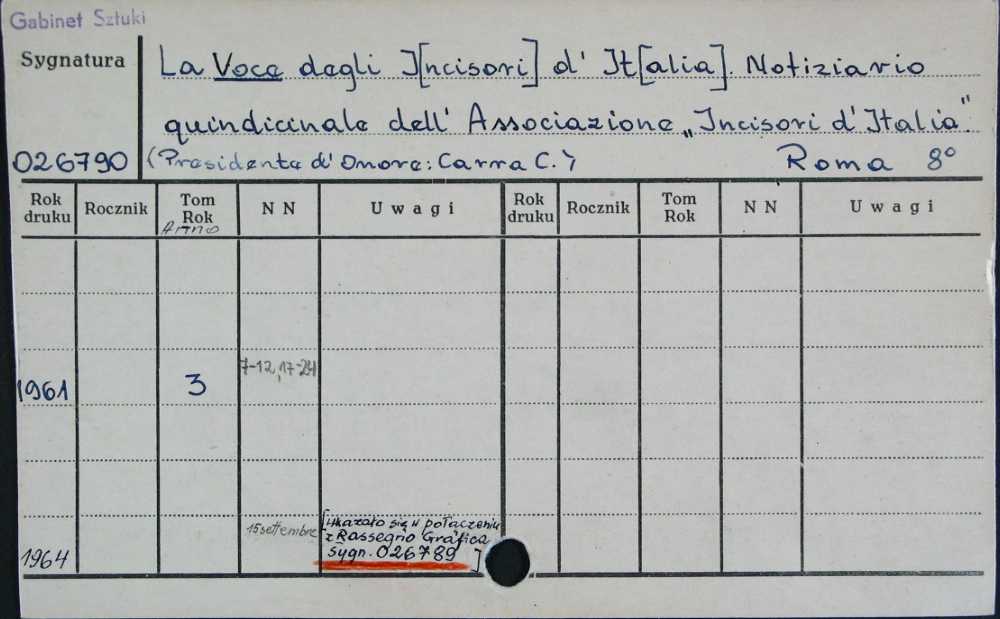 Gabinet Sztuki
Sygnatura
La Voce degli I[ncisori] d' It[alia]. Notiziario
quindicinale dell' Associazione „Incisori d'Italia."
026790 (Presidente d'Onore: Carra C.) Roma 8°
Rok druku Rocznik Tom Rok N N Uwagi Rok druku Rocznik Tom Rok N N Uwagi
Anno
1961 3 7-12, 17-24
1964 15 settembre [Ukazało się w połączeniu
z Rassegrio Gráfica
sygn. 026789 ]